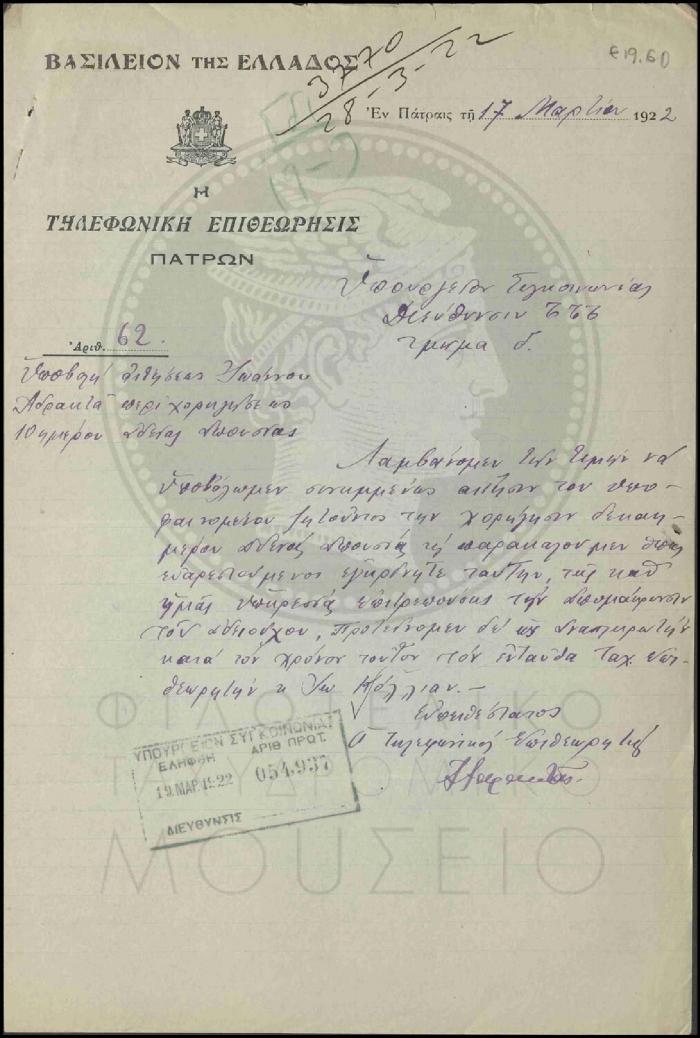 ΒΑΣΙΛΕΙΟΝ ΤΗΣ ΕΛΛΑΔΟΣ
3770
28-3-22
€19.60
Ἐν Πάτραις τῇ 17 Μαρτίου 1922
Η
ΤΗΛΕΦΩΝΙΚΗ ΕΠΙΘΕΩΡΗΣΙΣ
ΠΑΤΡΩΝ
Ὑπουργεῖον Συγκοινωνίας
Διεύθυνσιν ΤΤΤ
τμῆμα δ.
Ἀριθ. 62.
Ὑποβολή αἰτήσεως Ἰωάννου
περί χορηγήσεως
10ημέρου ἀδείας ἀπουσίας
Λαμβάνομεν τήν τιμήν νά
ὑποβάλωμεν συνημμένως αἴτησιν τοῦ ὑπο-
φαινομένου ζητοῦντος τήν χορήγησιν δεκαη-
μέρου ἀδείας ἀπουσίας παρακαλοῦμεν ὅπως
εὐαρεστούμενος ἐγκρίνητε ταύτην, τῆς καθ
ἡμᾶς ὑπηρεσίας ἐπιτρεπούσης τήν ἀπομάκρυνσιν
τοῦ ἀδειούχου, προτείνομεν δέ ὡς ἀναπληρωτήν
κατά τόν χρόνον τοῦτον τόν ἐνταῦθα ταχ. ἐπι-
θεωρητήν κ.
Εὐπειθέστατος
Ὁ Τηλεφωνικός Ἐπιθεωρητής
ΥΠΟΥΡΓΕΙΟΝ ΣΥΓΚΟΙΝΩΝΙΑΣ
ΕΛΗΦΘΗ ΑΡΙΘ ΠΡΩΤ.
19 ΜΑΡ. 1922 054937
ΔΙΕΥΘΥΝΣΙΣ
ΦΙΛΟΤΕΛΙΚΟ
ΤΑΧΥΔΡΟΜΙΚΟ
ΜΟΥΣΕΙΟ